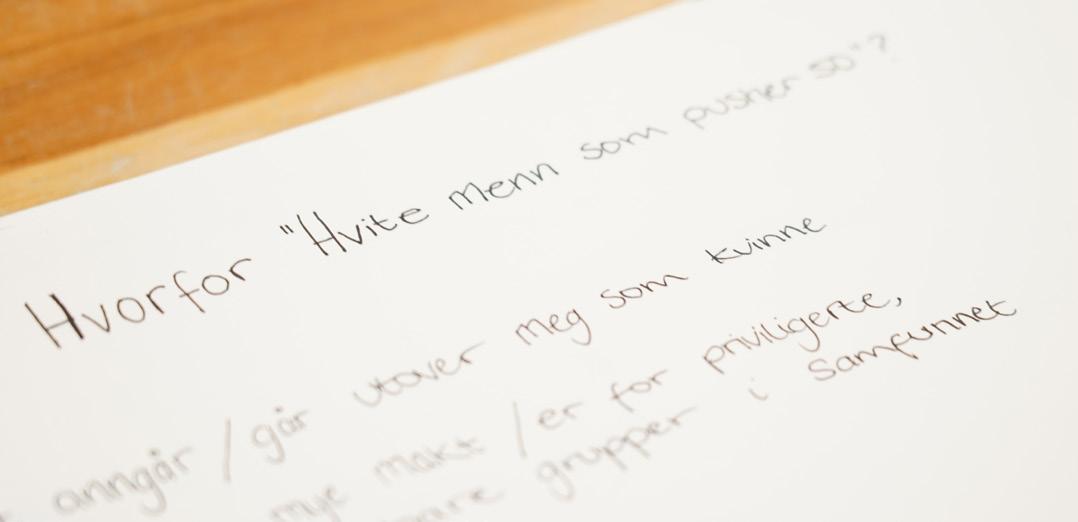 Hvorfor "Hvite menn som pusher 50"?
anngår / går utover meg som kvinne
mye makt / er for priviligerte,
grupper i samfunnet